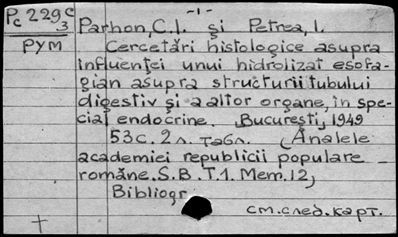 -1-
Pc 229 c/3
Parhon, C.I. şi Petrea, I.
РУМ
Cercetări histologice asupra
influenţei unui hidrolizat esofa-
gian asupra structurii tubului
digestiv şi a altor organe, în spe-
cial endocrine. Bucureşti, 1949
53с. 2л. табл. (Analele
academiei republicii populare
române. S.B. T.1. Mem. 12)
Bibliogr.
см.след.карт.
+